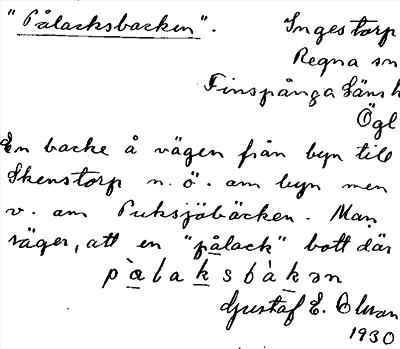 "Pålacksbacken". Ingestorp
Regna sn
Finspånga Läns h
Ögl
En backe å vägen från byn till
Skenstorp n. ö. om byn men
v. om Puksjöbäcken. Man
säger, att en "pålack" bott där
pàlaksbàkən
Gustaf E. Olson
1930